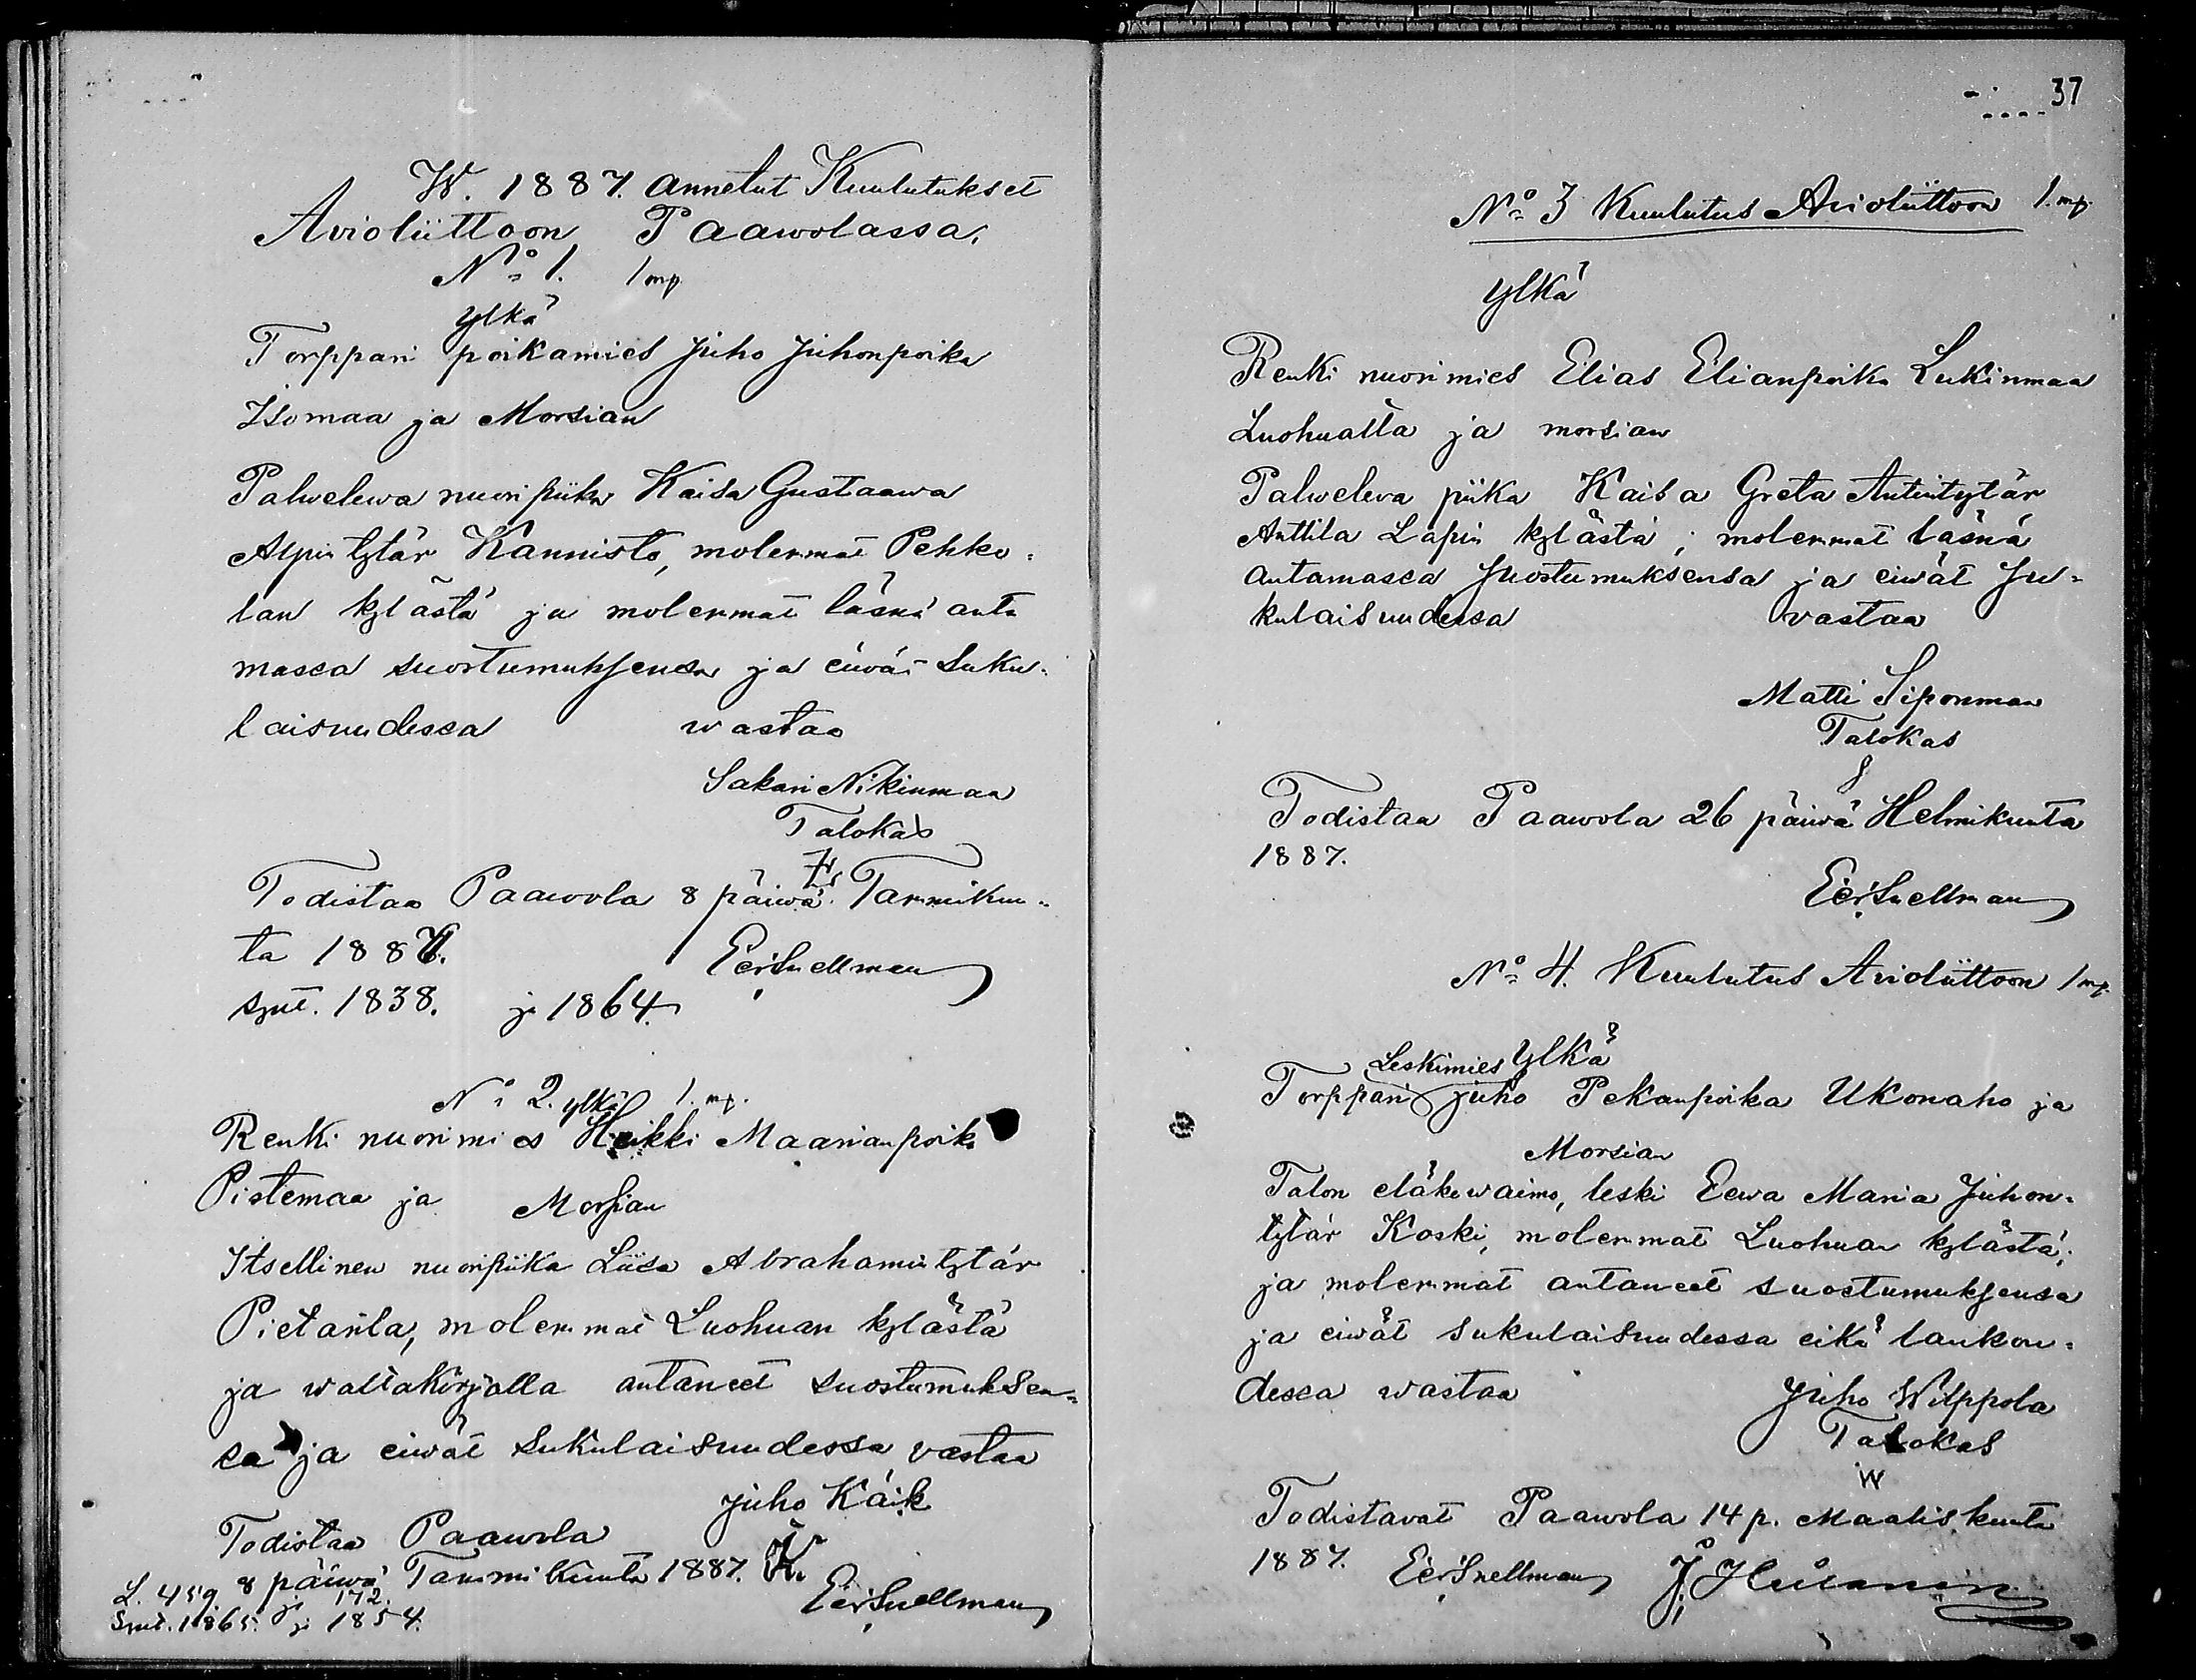 W. 1887. annetut Kuulutukset
Avioliittoon Paawolassa.
No 1. 1 mp.
ylkä
Torppari poikamies Juho Juhonpoika
Isomaa ja Morsian
Palwelewa nuori piika Kaisa Gustaawa
Alpin tytär Kannisto, molemmat Pehko=
lan kylästä ja molemmat läsnä anta
massa suostumuksensa ja eiwät suku=
laisuudessa wastaa
Sakari Nikinmaa
Talokas
Todistaa Paawola 8 päiwä Tammikuu=
ta 1887.
Eer Snellman
synt. 1838. ja 1864.
No 2. ylkä 1. mp.
Renki nuorimies Heikki Maarianpoika
Pistemaa ja Morsian
Itsellinen nuoripiika Liisa Abrahamintytär
Pietarila, molemmat Luohuan kylästä
ja waltakirjalla antaneet suostumuksen=
sa ja eiwät sukulaisuudessa vastaa
Juho Käik
Todistaa Paawola
8 päiwä Tammikuuta 1887. K.
L. 459. ja 172.
Eer Snellman
Synt. 1865. ja 1854.
37
No 3 Kuulutus Avioliittoon 1. mp.
ylkä
Renki nuorimies Elias Elianpoika Lukinmaa
Luohualta ja morsian
Palweleva piika Kaisa Greta Antintytär
Anttila Lapin kylästä; molemmat läsnä
antamassa suostumuksensa ja eiwät su=
kulaisuudessa vastaa
Matti Siponmaa
Talokas
Todistaa Paawola 26 päiwä Helmikuuta
1887.
Eer Snellman
No 4. Kuulutus Avioliittoon 1 mp.
Leskimies ylkä
Torppari Juho Pekanpoika Ukonaho ja
Morsian
Talon eläkewaimo, leski Eewa Maria Juhon=
tytär Koski, molemmat Luohuan kylästä;
ja molemmat antaneet suostumuksensa
ja eiwät sukulaisuudessa eikä lankou=
dessa wastaa
Juho Wilppola
Talokas
W
Todistavat Paawola 14 p. Maaliskuuta
1887. Eer Snellman